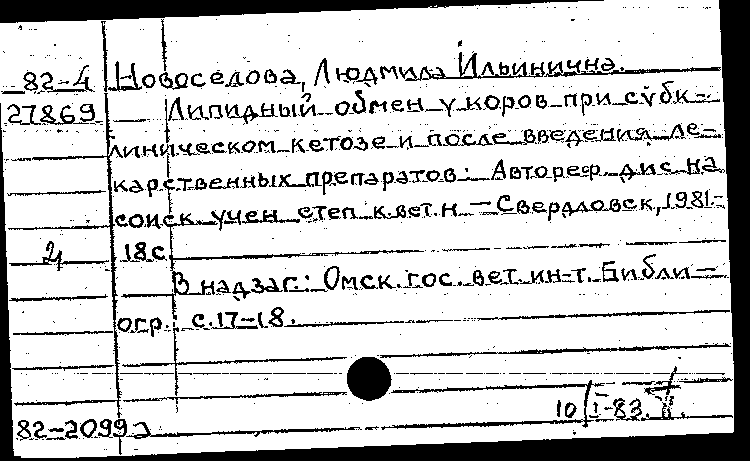 82-4 Новоселова, Людмила Ильинична.
27869 Липидный обмен у коров при субк-
линическом кетозе и после введения ле-
карственных препаратов: Автореф. дис на
соиск. учен. степ. к. вет. н. - Свердловск, 1981-
18 с.
В надзаг.: Омск. гос. вет. ин-т. Библи-
огр.: с. 17-18.
10/I-83.
82-2099